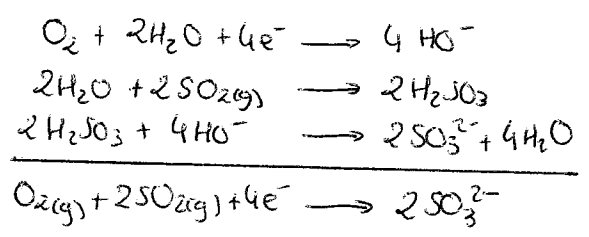 O₂ + 2H₂O + 4e⁻ ⟶ 4 HO⁻
2H₂O + 2SO₂(g) ⟶ 2H₂SO₃
2H₂SO₃ + 4HO⁻ ⟶ 2SO₃²⁻ + 4H₂O
O₂(g) + 2SO₂(g) + 4e⁻ ⟶ 2SO₃²⁻